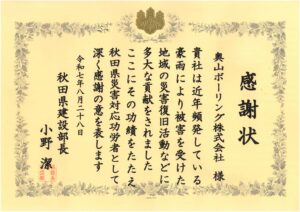 感謝状
奥山ボーリング株式会社 様
貴社は近年頻発している
豪雨により被害を受けた
地域の災害復旧活動などに
多大な貢献をされました
ここにその功績をたたえ
秋田県災害対応功労者として
深く感謝の意を表します
令和七年八月二十八日
秋田県建設部長
小野 潔